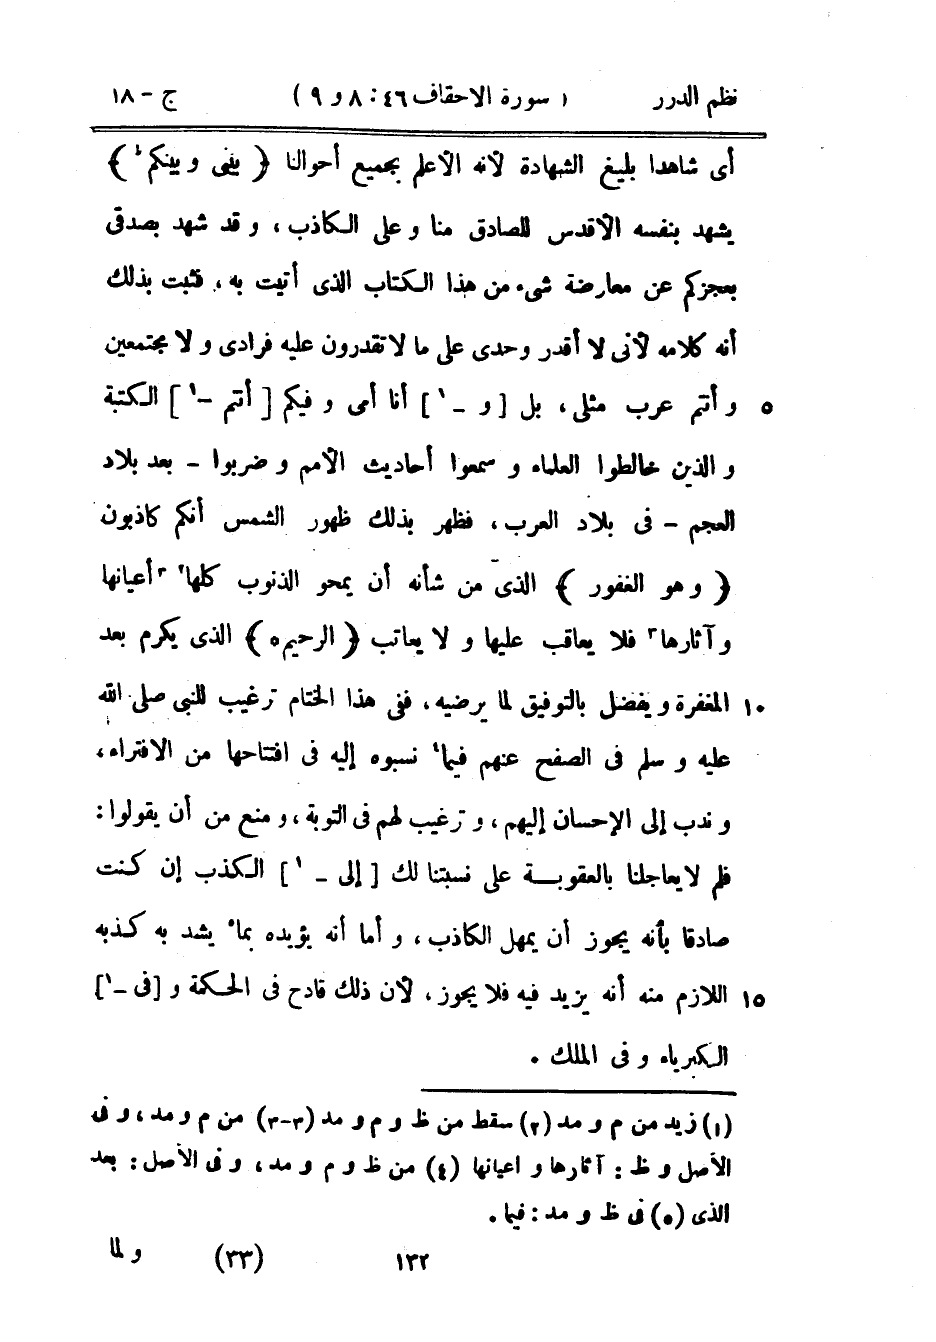 نظم الدرر ( سورة الاحقاف ٤٦ : ٨ و ٩ ) ج - ١٨
أى شاهدا بليغ الشهادة لأنه الأعلم بجميع أحوالنا ﴿ بينى و بينكم ١ ﴾
يشهد بنفسه الأقدس للصادق منا و على الكاذب ، و قد شهد بصدقى
بعجزكم عن معارضة شىء من هذا الكتاب الذى أتيت به ، فثبت بذلك
أنه كلامه لأنى لا أقدر وحدى على ما لا تقدرون عليه فرادى و لا مجتمعين
٥ و أنتم عرب مثلى ، بل [ و - ١ ] أنا أمى و فيكم [ أنتم - ١ ] الكتبة
و الذين خالطوا العلماء و سمعوا أحاديث الأمم و ضربوا - بعد بلاد
العجم - فى بلاد العرب ، فظهر بذلك ظهور الشمس أنكم كاذبون
﴿ و هو الغفور ﴾ الذى من شأنه أن يمحو الذنوب كلها ٢ ٣ أعيانها
و آثارها ٣ فلا يعاقب عليها و لا يعاتب ﴿ الرحيم ه ﴾ الذى يكرم بعد
١٠ المغفرة و يفضل بالتوفيق لما يرضيه ، ففى هذا الختام ترغيب للنبى صلى الله
عليه و سلم فى الصفح عنهم فيما ٤ نسبوه إليه فى افتتاحها من الافتراء ،
و ندب إلى الإحسان إليهم ، و ترغيب لهم فى التوبة ، و منع من أن يقولوا :
فلم لا يعاجلنا بالعقوبة على نسبتنا لك [ إلى - ١ ] الكذب إن كنت
صادقا بأنه يجوز أن يمهل الكاذب ، و أما أنه يؤيده بما ٥ يشد به كذبه
١٥ اللازم منه أنه يزيد فيه فلا يجوز ، لأن ذلك قادح فى الحكمة و [ فى - ١ ]
الكبرياء و فى الملك .
(١) زيد من م و مد (٢) سقط من ظ و م و مد (٣-٣) من م و مد ، و فى
الأصل و ظ : آثارها و اعيانها (٤) من ظ و م و مد ، و فى الأصل : بعد
الذى (٥) فى ظ و مد : فيما .
١٣٢ (٣٣) و لما